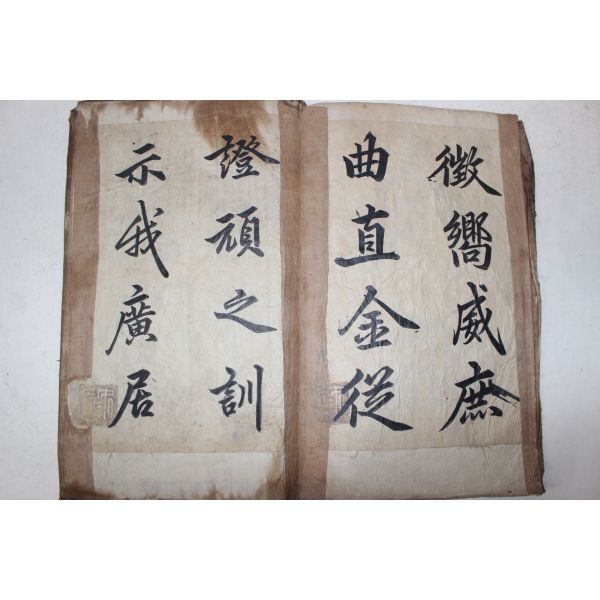 徵嚮威庶
曲直金從
證頑之訓
示我廣居